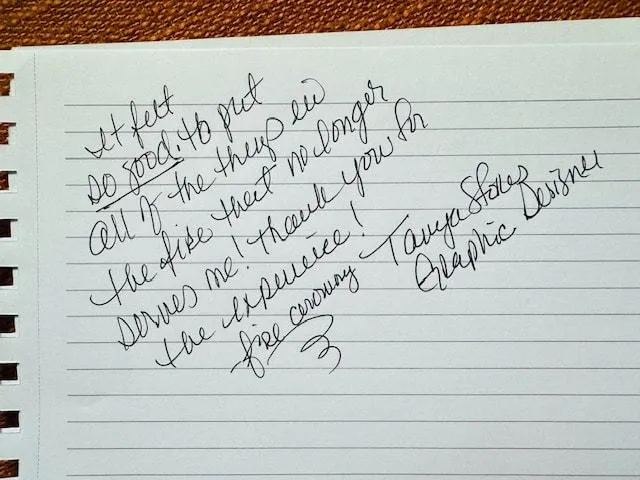 It felt
so good. to put
all of the things in
the fire that no longer
serves me! Thank you for
the experience!
fire ceremony
Tanya Stokes
Graphic Designer